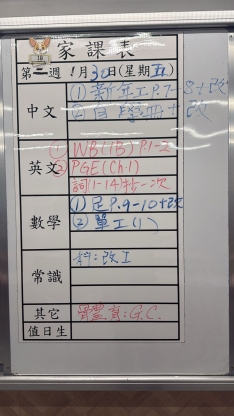 家課表
第二週 1月30日(星期五)
中文
(1) 新年工P.7-8+改
(2) 自學冊+改
英文
① WB(1B) P.1-2
② PGE(Ch.1)
詞(1-14)抄一次
數學
(1) 足P.9-10+改
(2) 單工(1)
常識
科:改工
其它
育:G.C.
值日生